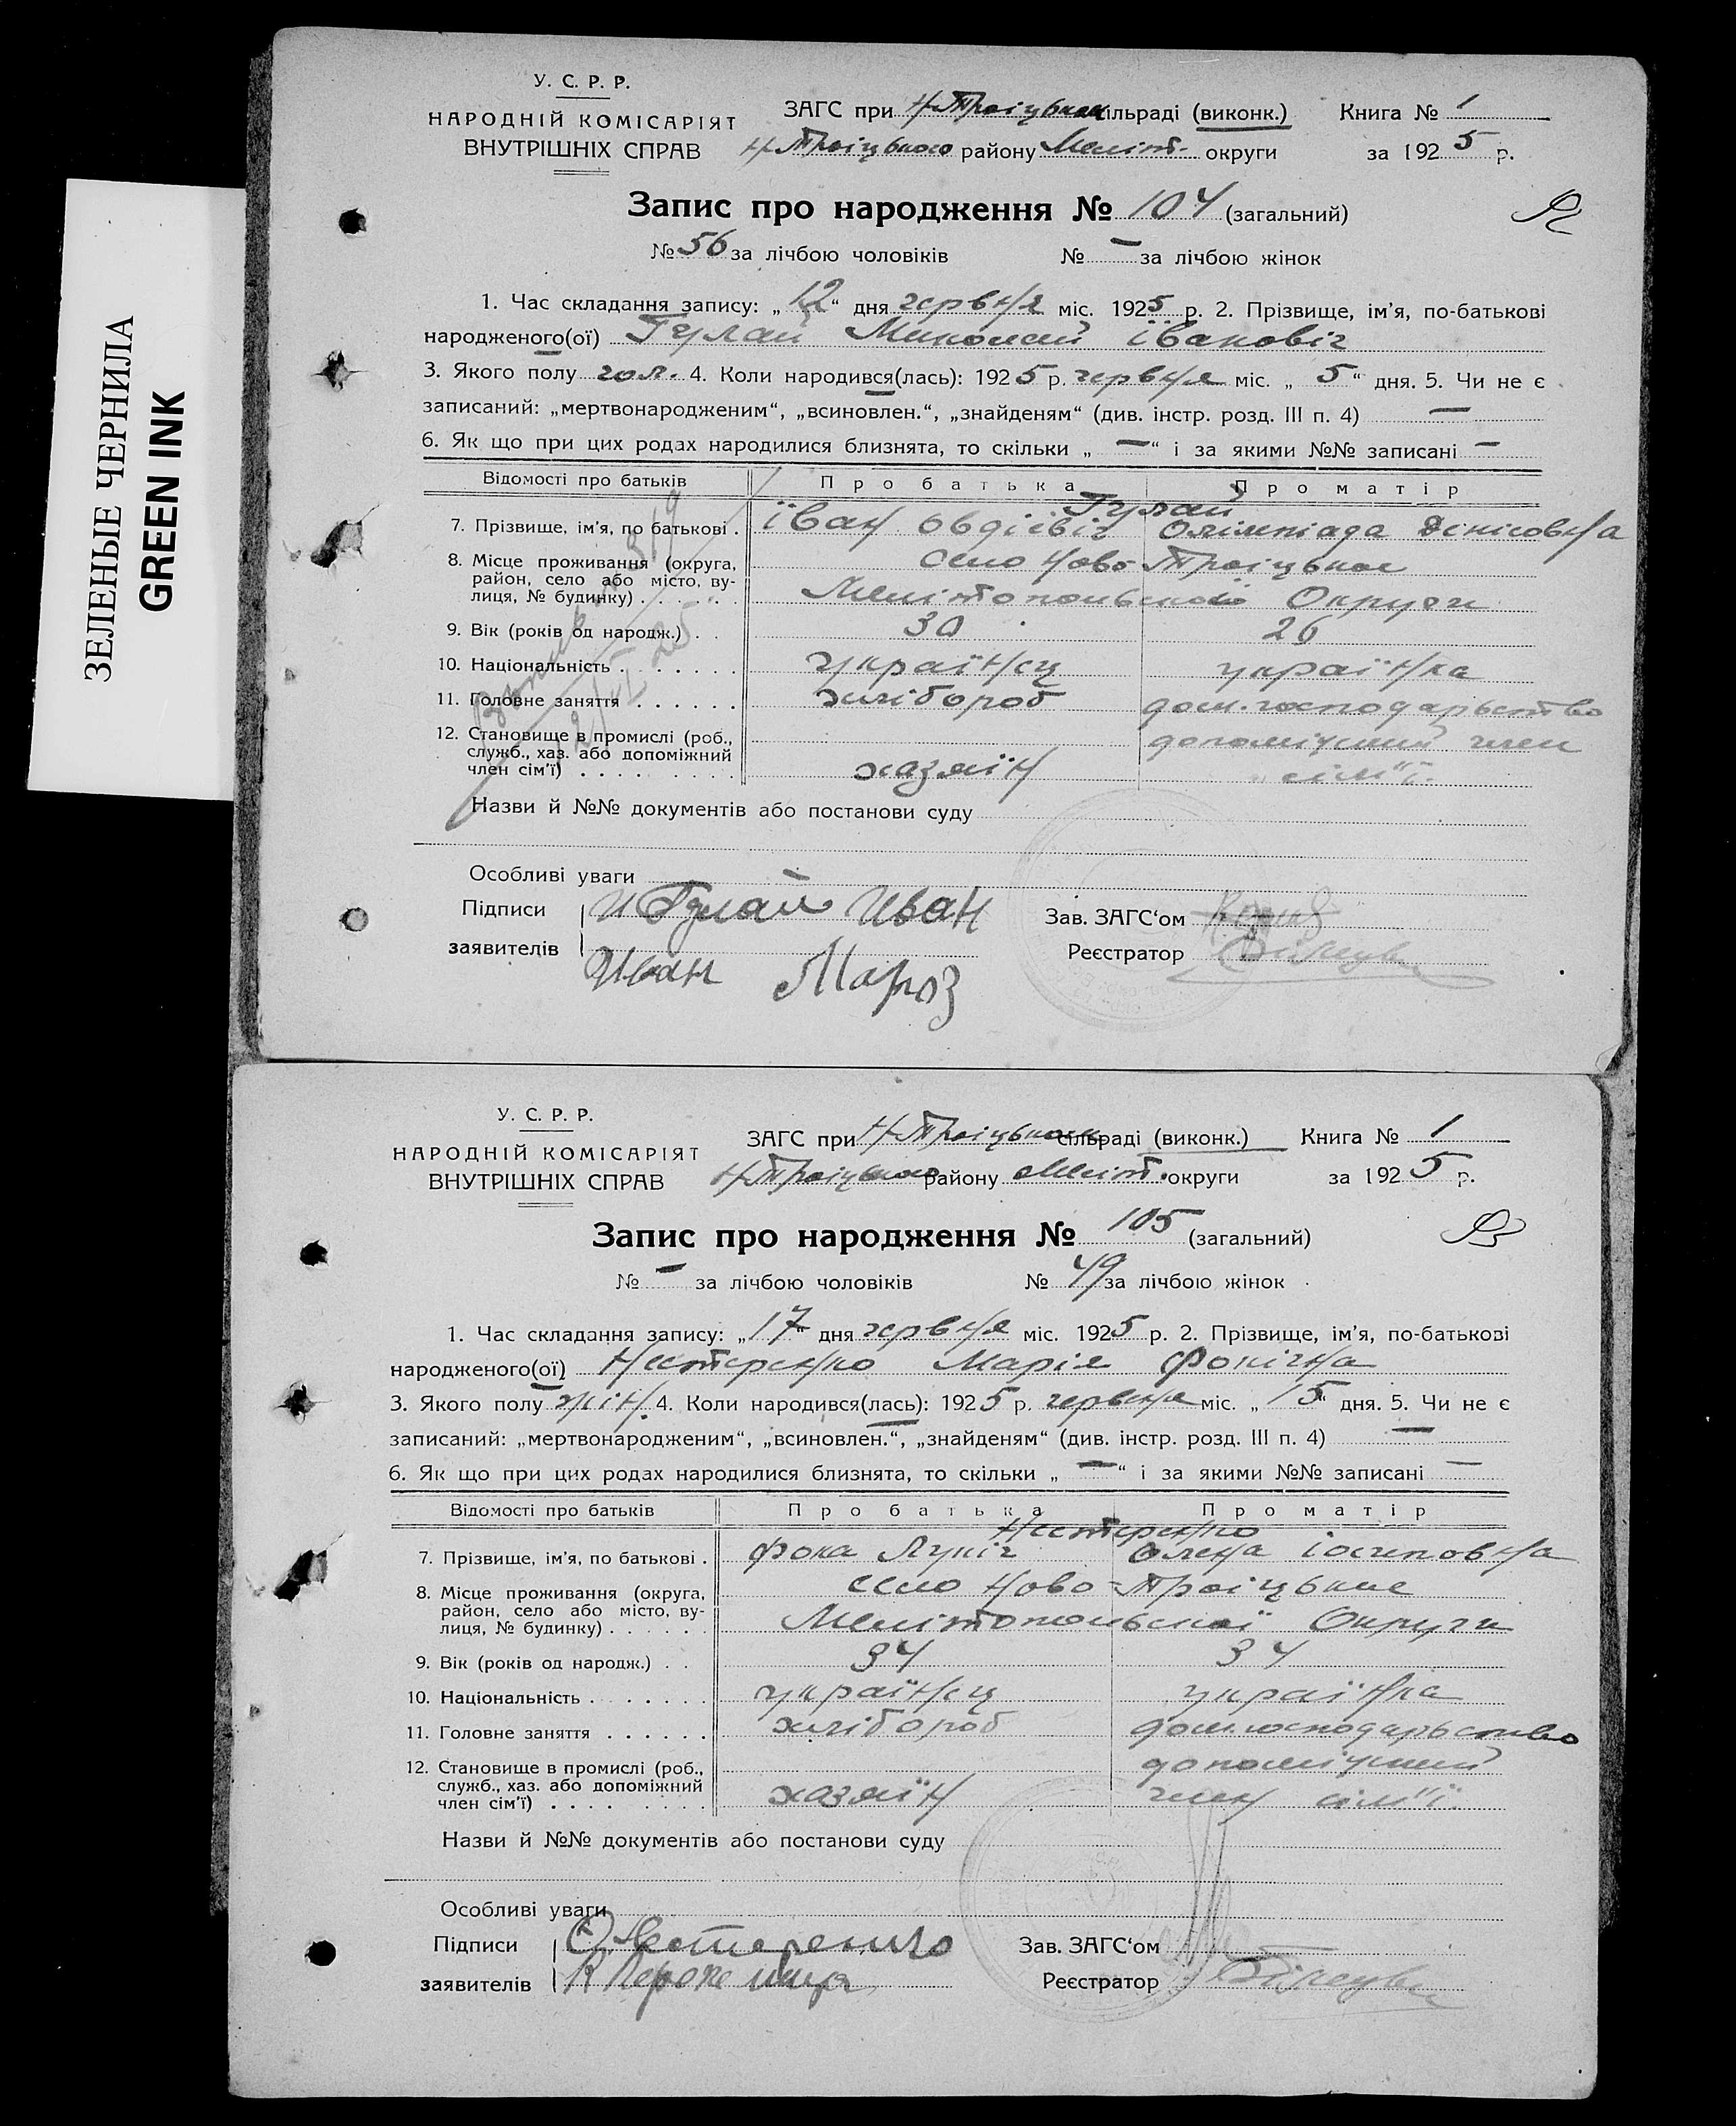 ЗЕЛЕНЫЕ ЧЕРНИЛА
GREEN INK
У. С. Р. Р.
НАРОДНІЙ КОМІСАРІЯТ
ВНУТРІШНІХ СПРАВ
ЗАГС при Н-Троіцьком сільраді (виконк.) Книга № 1
Н-Троіцького району Меліт. округи за 1925 р.
Запис про народження № 104 (загальний)
№ 56 за лічбою чоловіків № — за лічбою жінок
1. Час складання запису: „12“ дня червня міс. 1925 р. 2. Прізвище, ім'я, по-батькові
народженого(ої) Гулай Миколай Івановіч
3. Якого полу чол. 4. Коли народився(лась): 1925 р. червня міс. „5“ дня. 5. Чи не є
записаний: „мертвонародженим“, „всиновлен.“, „знайденям“ (див. інстр. розд. III п. 4) —
6. Як що при цих родах народилися близнята, то скільки „—“ і за якими №№ записані —
Відомості про батьків Про батька Про матір
Гулай
7. Прізвище, ім'я, по батькові . Їван Овдієвіч Олімпіада Денісовна
8. Місце проживання (округа, село Ново-Троіцькое
район, село або місто, ву-
лиця, № будинку) . . . . . . Мелітопольської Округи
9. Вік (років од народж.) . . 30 26
10. Національність . . . . . . . українец українка
11. Головне заняття . . . . . . хлібороб дом. господарьство
12. Становище в промислі (роб., допоміжний член
служб., хаз. або допоміжний
член сім'ї) . . . . . . . . . хазяїн сім"ї.
Назви й №№ документів або постанови суду
Особливі уваги
Підписи И Гулай Иван Зав. ЗАГС'ом
заявителів Реєстратор
Иван Мароз
У. С. Р. Р.
НАРОДНІЙ КОМІСАРІЯТ
ВНУТРІШНІХ СПРАВ
ЗАГС при Н-Троіцьком сільраді (виконк.) Книга № 1
Н-Троіцького району Меліт. округи за 1925 р.
Запис про народження № 105 (загальний)
№ — за лічбою чоловіків № 49 за лічбою жінок
1. Час складання запису: „17“ дня червня міс. 1925 р. 2. Прізвище, ім'я, по-батькові
народженого(ої) Нестеренко Марія Фокічна
3. Якого полу жін. 4. Коли народився(лась): 1925 р. червеня міс. „15“ дня. 5. Чи не є
записаний: „мертвонародженим“, „всиновлен.“, „знайденям“ (див. інстр. розд. III п. 4) —
6. Як що при цих родах народилися близнята, то скільки „—“ і за якими №№ записані —
Відомості про батьків Про батька Про матір
Нестеренко
7. Прізвище, ім'я, по батькові . Фока Лукіч Олена Іосиповна
8. Місце проживання (округа, село Ново-Троіцькое
район, село або місто, ву-
лиця, № будинку) . . . . . Мелітопольської Округи
9. Вік (років од народж.) . . 34 34
10. Національність . . . . . . . українец українка
11. Головне заняття . . . . . . хлібороб дом. господарьство
12. Становище в промислі (роб., допоміжний
служб., хаз. або допоміжний
член сім'ї) . . . . . . . . хазяїн член сім"ї.
Назви й №№ документів або постанови суду
Особливі уваги
Підписи Ф Нестеренко Зав. ЗАГС'ом
заявителів Реєстратор